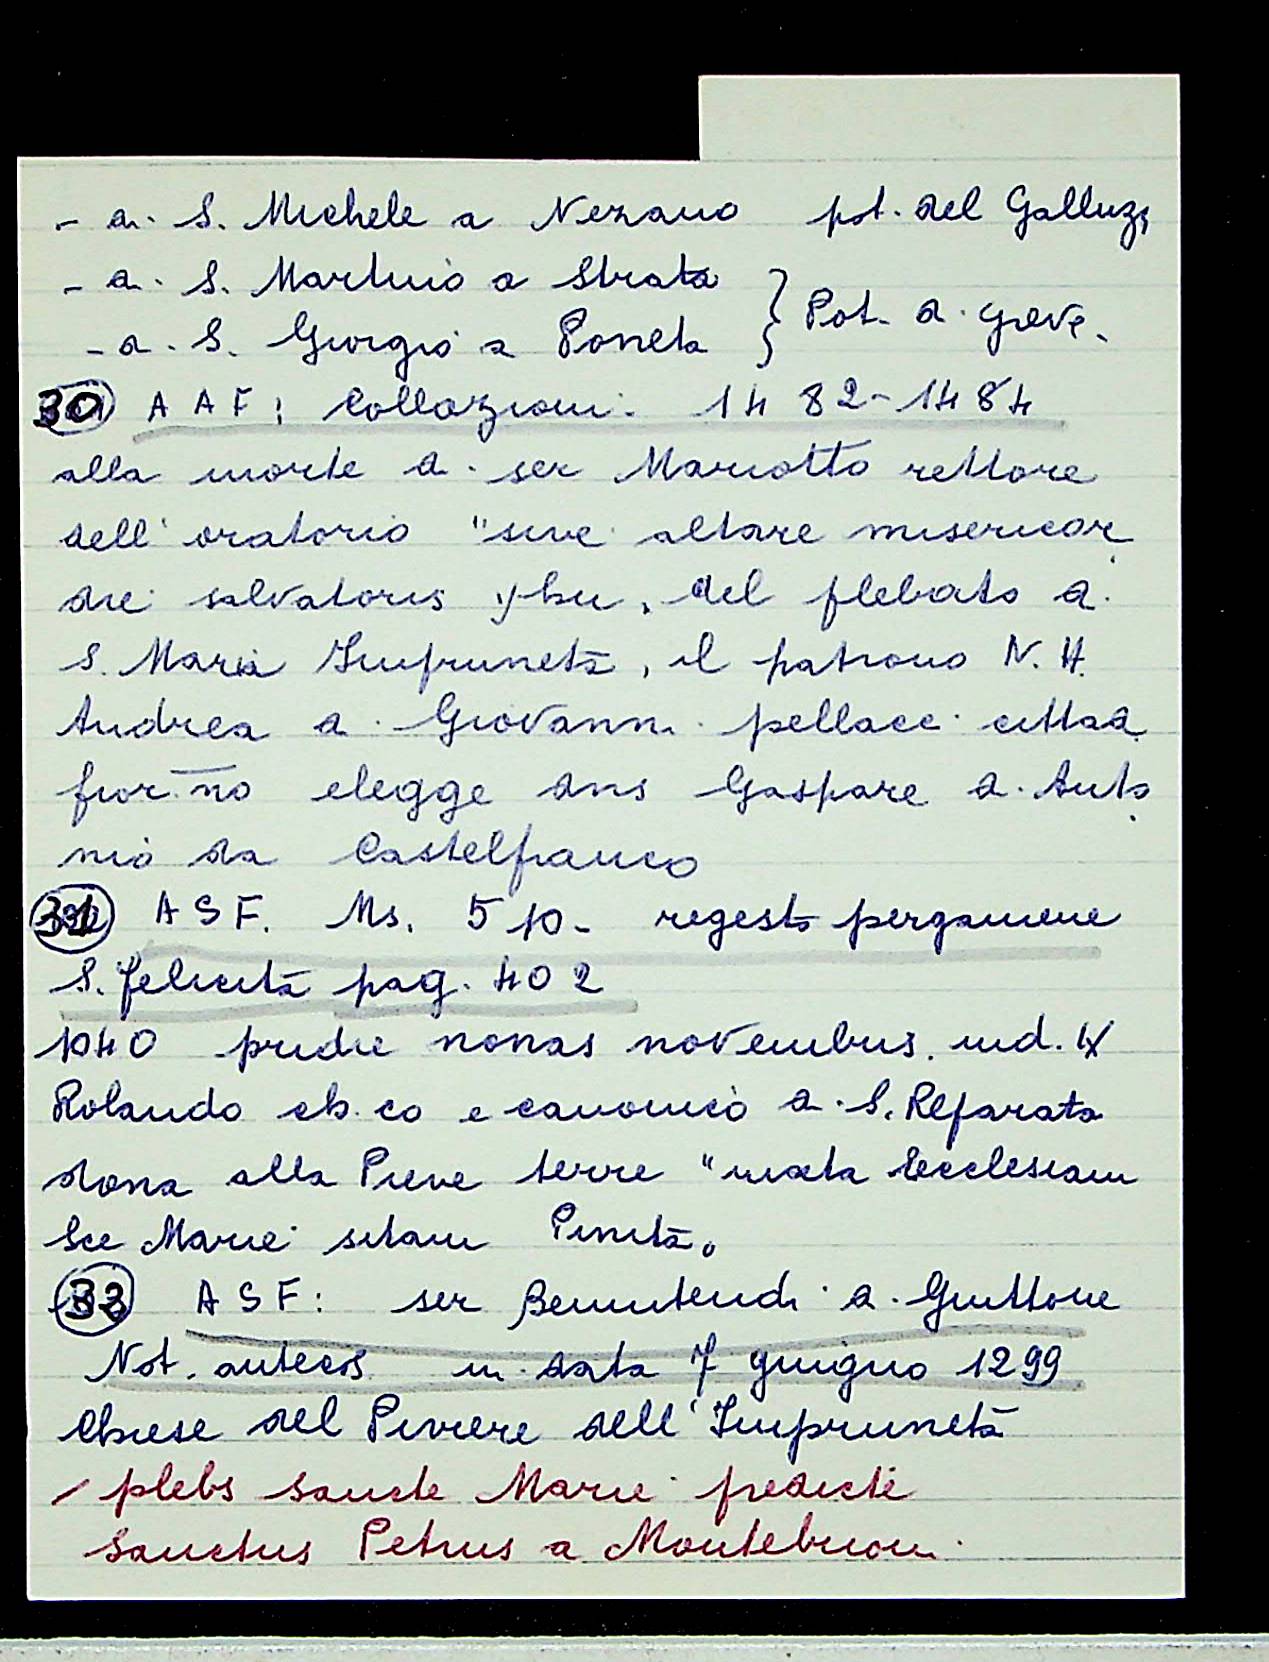 - di S. Michele a Nezano pot. del Galluzzi
- di S. Martino a Strata } Pot. di greve.
- di S. Giorgio a Poneta
30 AAF: Collazioni. 1482-1484
alla morte di ser Mariotto rettore
dell'oratorio "sive altare misericor
die salvatoris yhu, del plebato di
S. Maria Imprunetā, il patrono N. H.
Andrea di Giovanni pellacci cittad
fior.no elegge dns Gaspare di Anto
nio da Castelfranco
31 ASF. Ms. 510 - regesto pergamene
S. felicità pag. 402
1040 pridie nonas novembris. ind. IX
Rolando ch.co e canonico di S. Reparata
dona alla Pieve terre "iuxta Ecclesiam
Sce Marie sitam Pinitā.
ASF: ser Benintendi di Guittone
Not. antecos. in data 7 giugno 1299
Chiese del Piviere dell'Imprunetā
/ plebs sancte Marie predicte
Sanctus Petrus a Montebuoni.